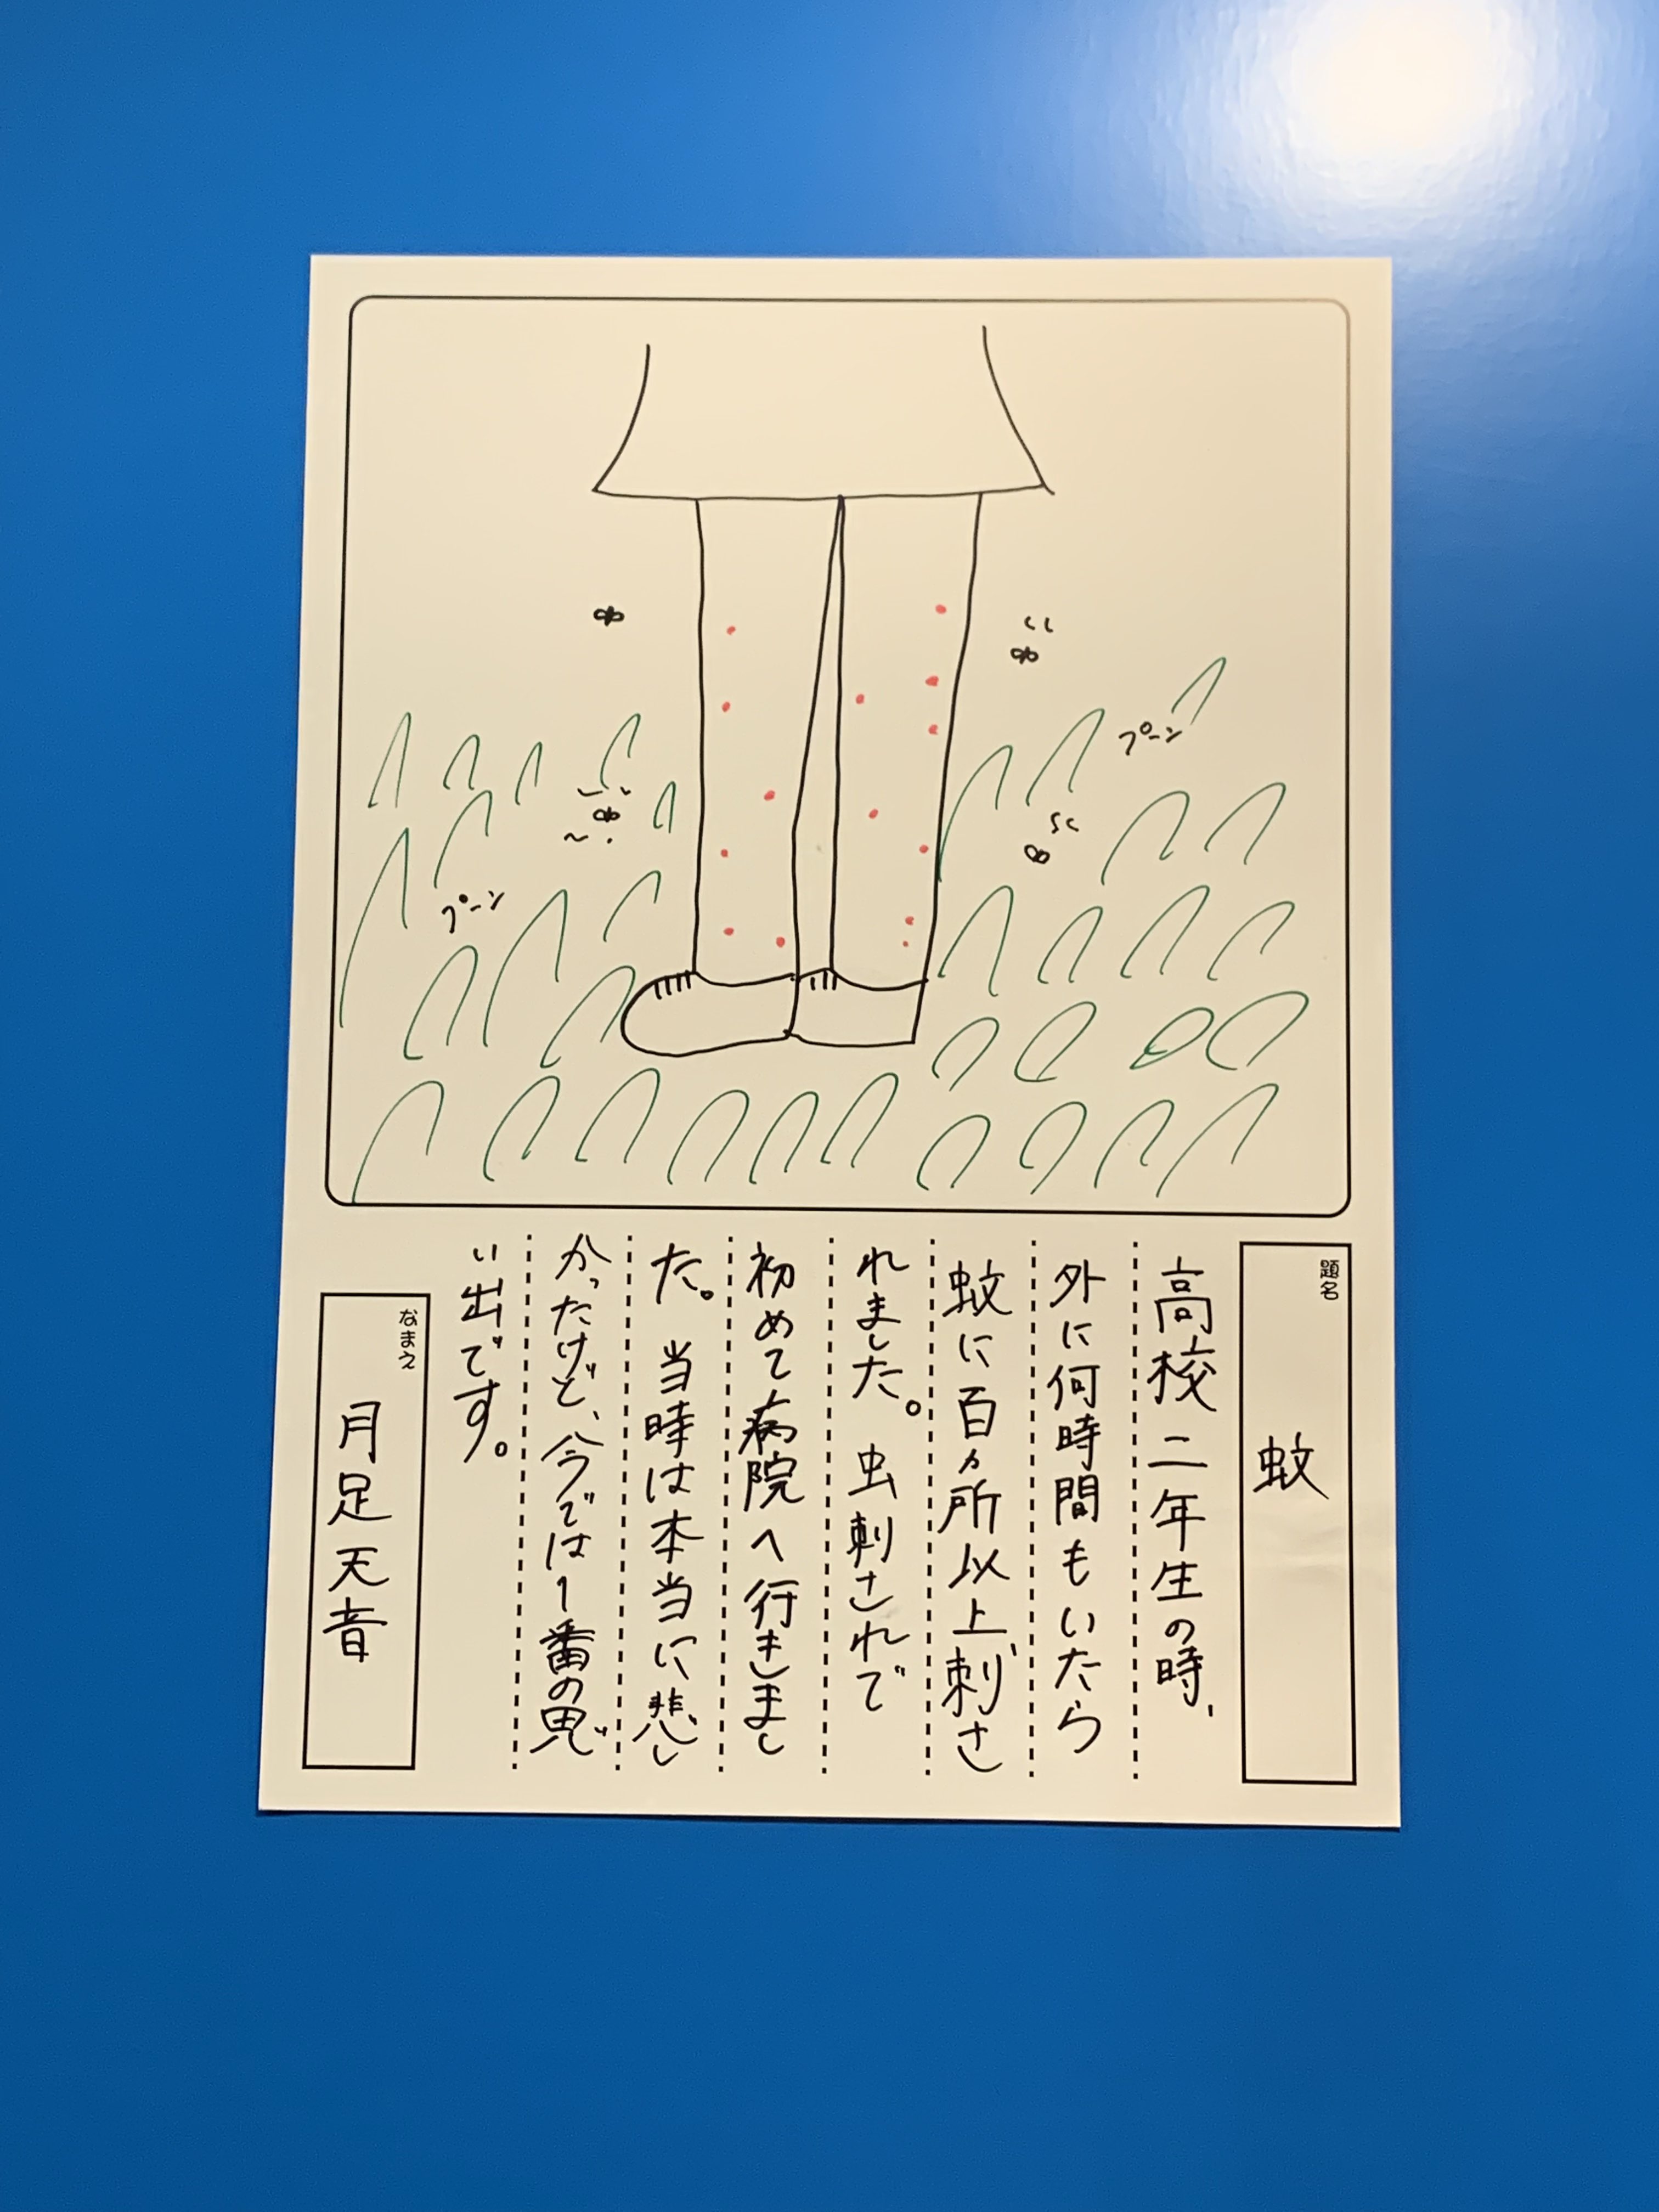 プーン
プーン
題名
蚊
高校二年生の時、
外に何時間もいたら
蚊に百ヵ所以上刺さ
れました。虫刺されで
初めて病院へ行きまし
た。当時は本当に悲し
かったけど、今では1番の思
い出です。
なまえ
月足天音